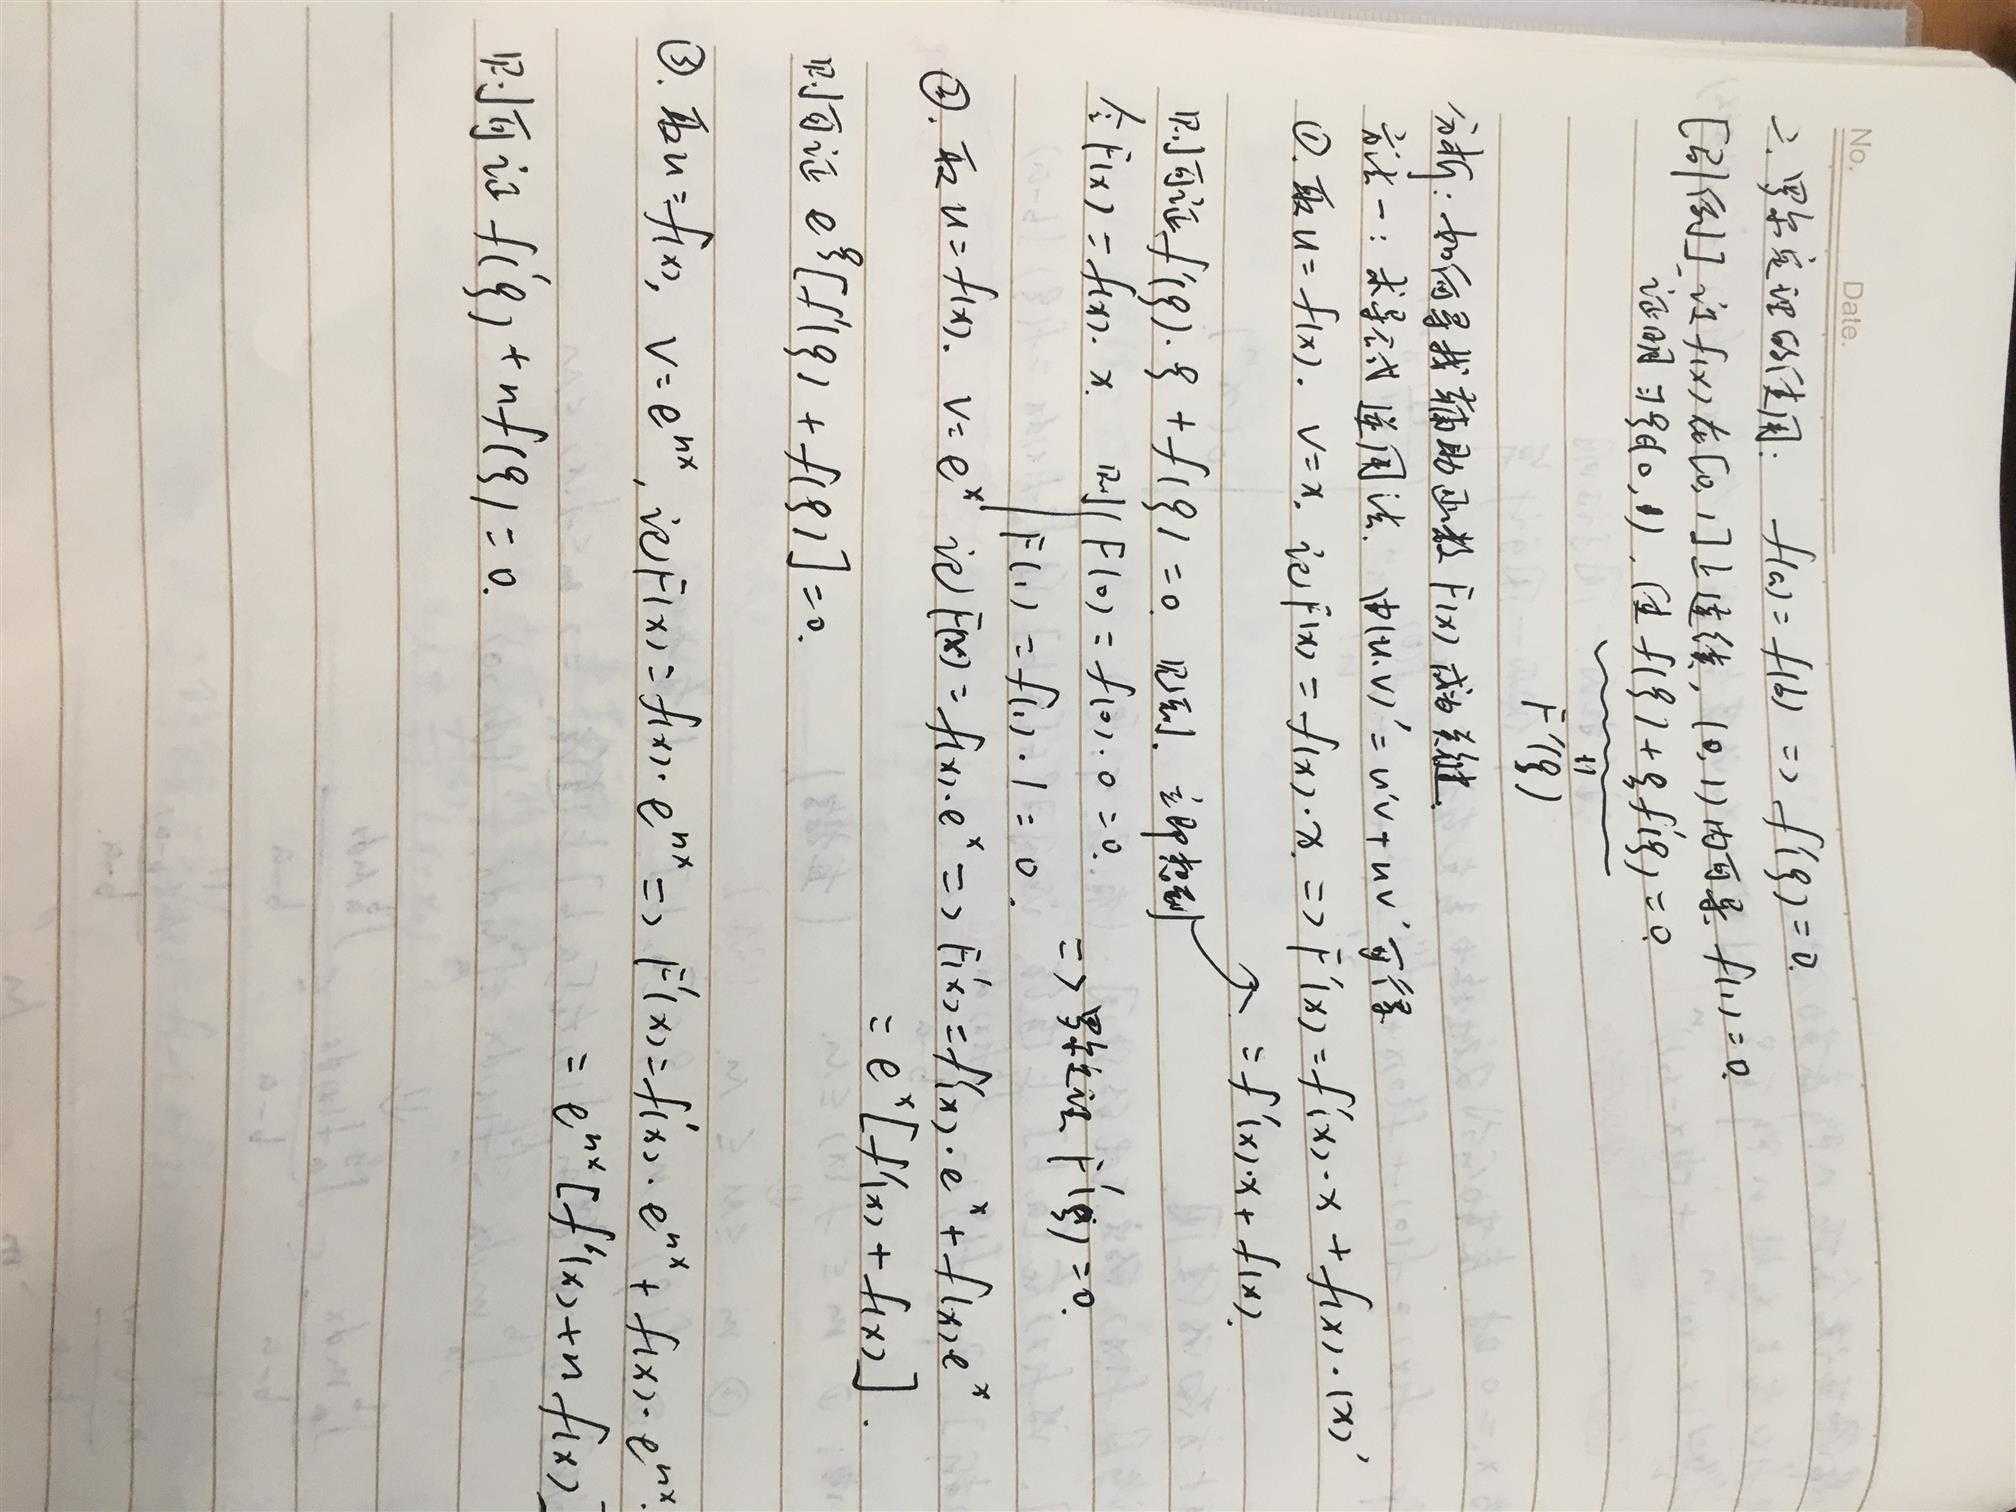 No.
Date.
二. 罗尔定理的使用. f(a)=f(b) => f'(ξ)=0.
[引例] 设f(x)在[0,1]上连续,(0,1)内可导. f(1)=0.
证明∃ξ∈(0,1),使f(ξ)+ξf'(ξ)=0.
"
F'(ξ)
分析:如何寻找辅助函数F(x)成为关键.
方法一:求导公式逆用法. 由(u.v)'=u'v+uv'可得
①.取u=f(x). v=x. 记F(x)=f(x)·x. => F'(x)=f'(x)·x+f(x)·(x)'
=f'(x)·x+f(x).
则可证f'(ξ)·ξ+f(ξ)=0. 见到. 立即想到
令F(x)=f(x)·x. 则 F(0)=f(0)·0=0.
F(1)=f(1)·1=0.
=> 罗尔定理 F'(ξ)=0.
②.取u=f(x). v=e^x 记F(x)=f(x)·e^x => F'(x)=f'(x)·e^x+f(x)e^x
=e^x[f'(x)+f(x)].
则可证 e^ξ[f'(ξ)+f(ξ)]=0.
③.取u=f(x), v=e^{nx}, 记F(x)=f(x)·e^{nx} => F'(x)=f'(x)·e^{nx}+f(x)·e^{nx}.
=e^{nx}[f'(x)+nf(x)]
则可证 f'(ξ)+nf(ξ)=0.